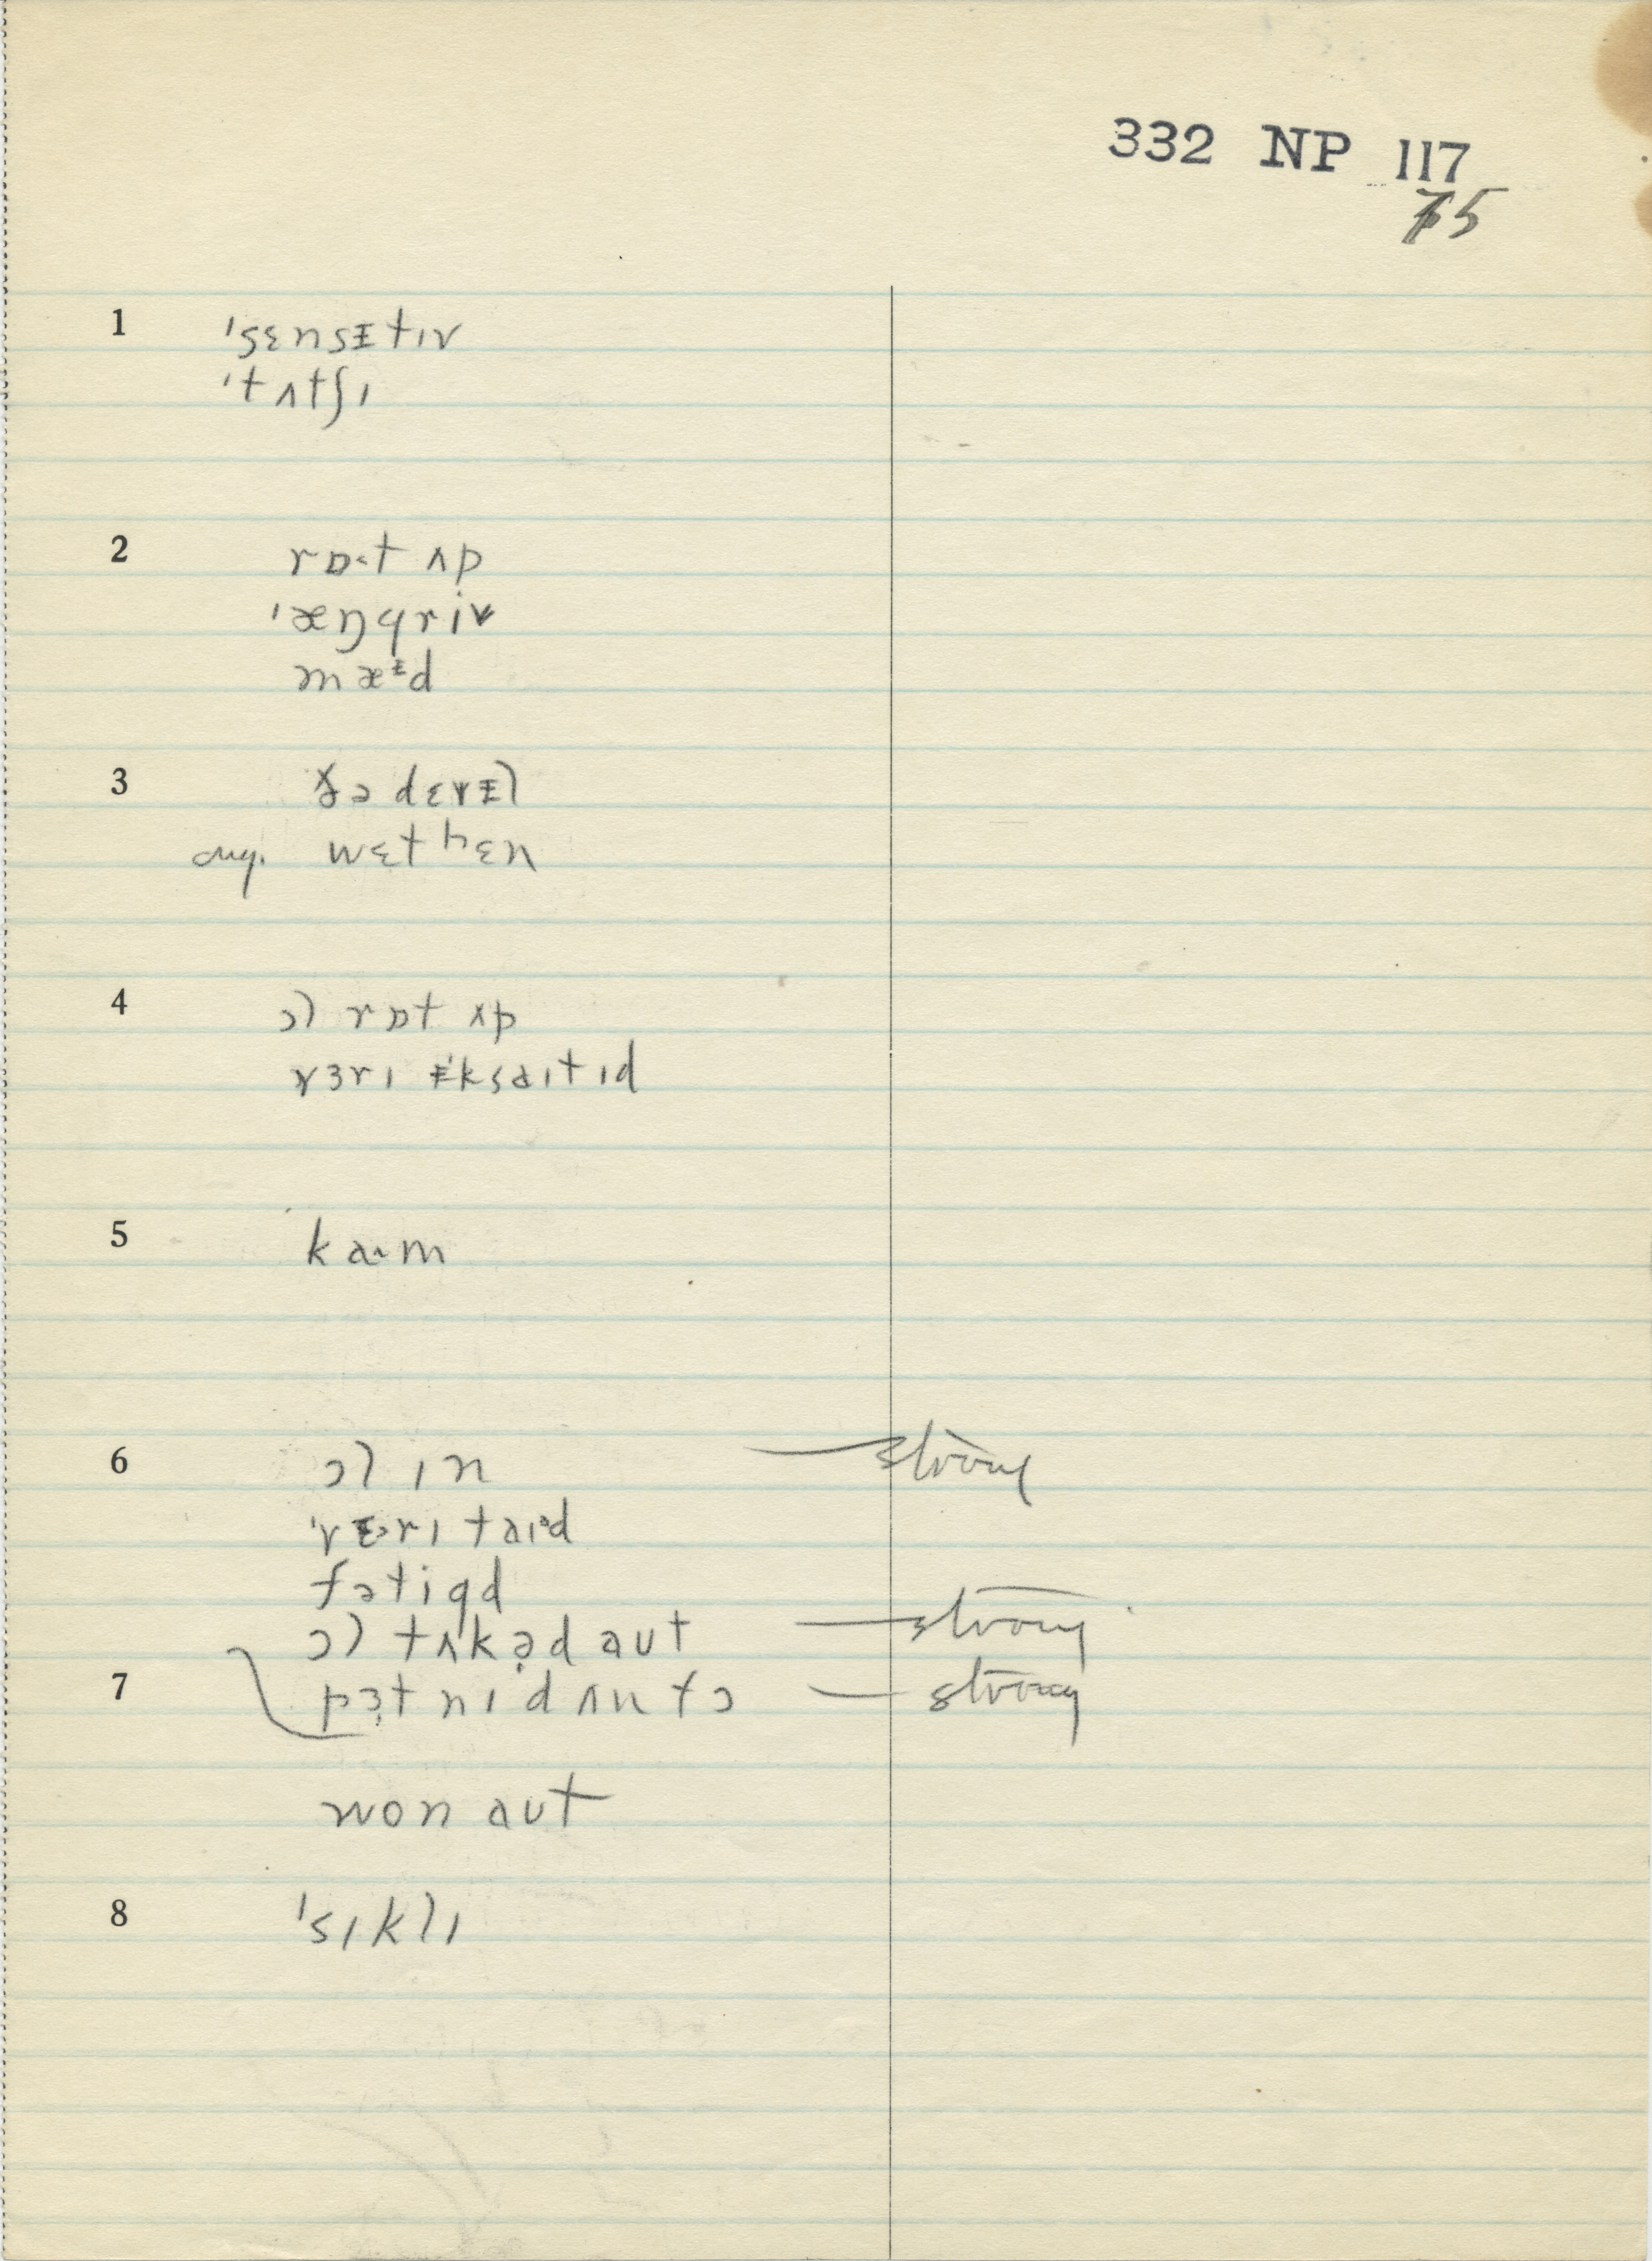 332 NP 117
75
1 ˈsɛnsᵻtɪv
ˈtʌtʃɪ
2 rɒ·t ʌp
ˈæŋgri
mæᵻd
3 ðə dɛvᵻl
wɛthɛn
4 ɔl rɒt ʌp
vɜrɪ ᵻˈksaɪtɪd
5 ka·m
6 ɔl ɪn —strong
ˈvɜrɪ taɪəd
fətigd
ɔl tʌkəd aut —strong
7 pɜt nɪ dʌn fɔ —strong
wɔn aut
8 ˈsɪklɪ